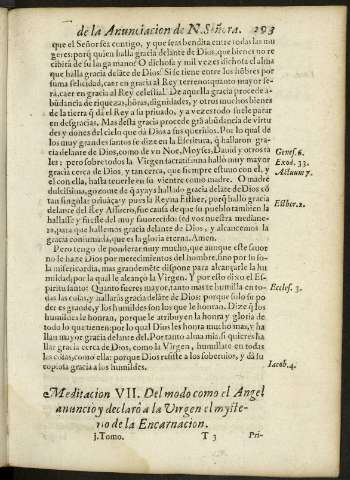 de la Anunciacion de N. Señora. 293
que el Señor sea contigo, y que seas bendita entre todas las mu
geres: porq̃ quien halla gracia delãte de Dios, que bienes no re
cibirà de su larga mano? O dichosa y mil vezes dichosa el alma
que halla gracia delãte de Dios! Si se tiene entre los hõbres por
suma felicidad, caer en gracia al Rey terreno: quanto mayor se-
rà, caer en gracia al Rey celestial. De aquella gracia procede a-
bũdancia de riquezas, hõras, dignidades, y otros muchos bienes
de la tierra q̃ dà el Rey a su priuado, y a vezes todo suele parar
en desgracias. Mas desta gracia procede grã abũdancia de virtu
des y dones del cielo que dà Dios a sus queridos. Por lo qual de
los muy grandes santos se dize en la Escritura, q̃ hallaron gra-
cia delante de Dios, como de vn Noe, Moyses, Dauid y otros ta
les; pero sobre todos la Virgen sacratissima hallò muy mayor
gracia cerca de Dios, y tan cerca, que siempre estuuo con el, y
el con ella, hasta tenerle en su vientre como madre. O madre
dulcissima, gozome de q̃ ayays hallado gracia delãte de Dios cõ
tan singular priuãça, y pues la Reyna Esther, porq̃ hallò gracia
delante del Rey Assuero, fue causa de que su pueblo tambien la
hallasse y fuesse del muy fauorecido: sed vos nuestra mediane-
ra, para que hallemos gracia delante de Dios, y alcancemos la
gracia consumada, que es la gloria eterna. Amen.
Pero tengo de ponderar muy mucho, que aunque este fauor
no le haze Dios por merecimientos del hombre, sino por su so-
la misericordia, mas grandemẽte dispone para alcançarle la hu
mildad, por la qual le alcançò la Virgen. Y por esto dixo el Es-
piritu santo: Quanto fueres mayor, tanto mas te humilla en to-
das las cosas, y hallaràs gracia delãte de Dios: porque solo su po
der es grande, y los humildes son los que le honran. Dize q̃ los
humildes le honran, porque le atribuyen la honra y gloria de
todo lo que tienen: por lo qual Dios les honra mucho mas, y ha
llan muy mayor gracia delante del. Por tanto alma mia, si quieres ha
llar gracia cerca de Dios, como la Virgen, humillate en todas
las cosas, como ella: porque Dios resiste a los soberuios, y dà su
copiosa gracia a los humildes.
Genes. 6.
Exod. 33.
Actuum 7.
Esther. 2.
Ecclef. 3.
Iacob. 4.
Meditacion VII. Del modo como el Angel
anuncio y declarò a la Virgen el myste-
rio de la Encarnacion.
j. Tomo. T 3 Pri-